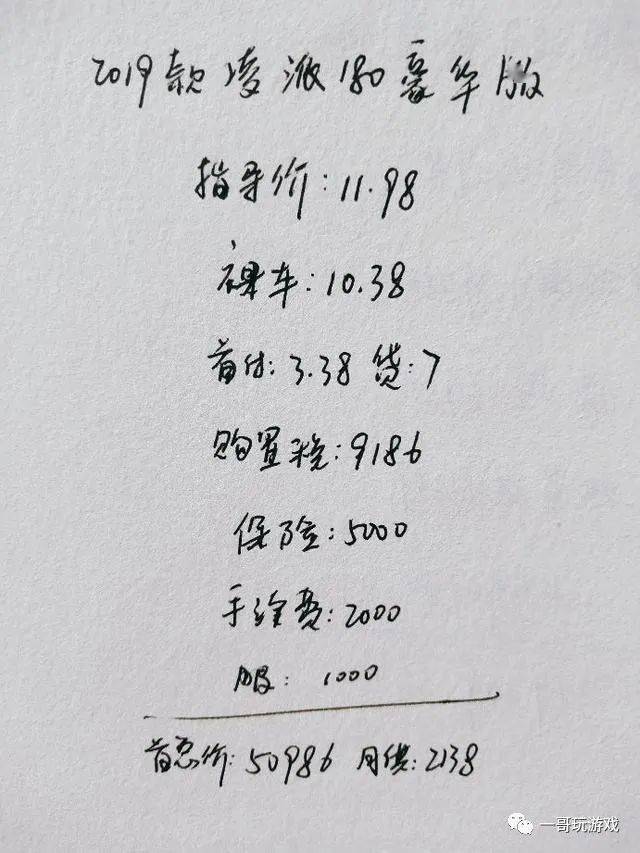 2019款凌派180豪华版
指导价:11.98
裸车:10.38
首付:3.38 贷:7
购置税:9186
保险:5000
手续费:2000
服: 1000
首总价:50986 月供:2138
一哥玩游戏